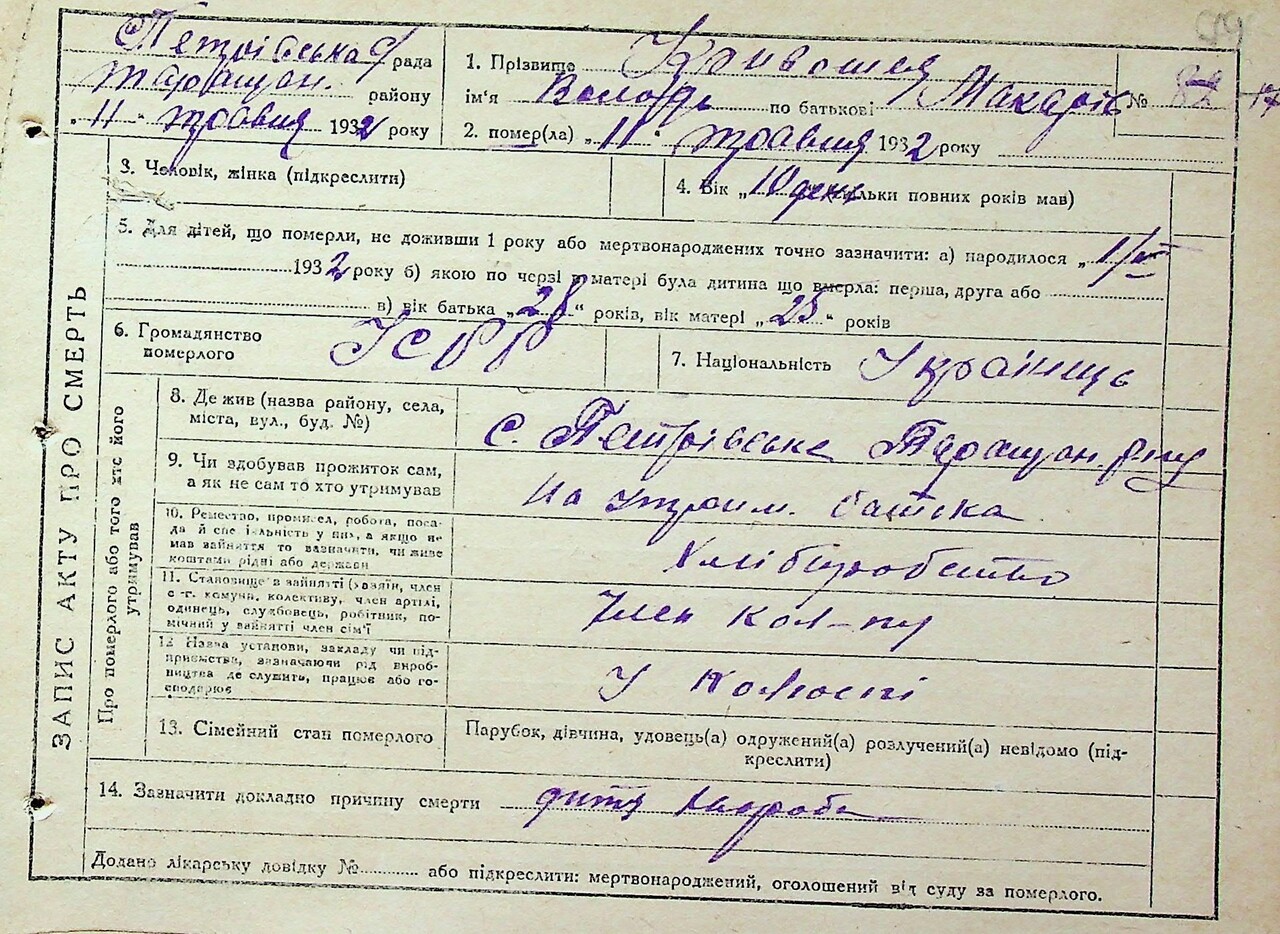 Петрівська с/рада
Таращан. району
„11" травня 1932 року
1. Прізвище Кривошея
ім'я Володь по батькові Макарів №
2. помер(ла) „11" травня 1932 року
3. Чоловік, жінка (підкреслити)
4. Вік „10 день скільки повних років мав)
5. Для дітей, що померли, не доживши 1 року або мертвонароджених точно зазначити: а) народилося „1/V
1932 року б) якою по черзі в матері була дитина що вмерла: перша, друга або
в) вік батька „28" років, вік матері „25" років
6. Громадянство
померлого
УСРР
7. Національність Українець
ЗАПИС АКТУ ПРО СМЕРТЬ
Про померлого або того хто його
утримував
8. Де жив (назва району, села,
міста, вул., буд. №)
с. Петрівське Таращан. р-ну
9. Чи здобував прожиток сам,
а як не сам то хто утримував
На утрим. батька
10. Ремество, промисел, робота, поса-
да й спеціяльність у них, а якщо не
мав зайняття то зазначити, чи живе
коштами рідні або держави
Хліборобство
11. Становище в зайнятті (хазяїн, член
с-г. комуни, колективу, член артілі,
одинець, службовець, робітник, по-
мічний у зайнятті член сім'ї
Член кол-пу
12. Назва установи, закладу чи під-
приємства, зазначаючи рід вироб-
ництва де служить, працює або го-
сподарює
У колгоспі
13. Сімейний стан померлого
Парубок, дівчина, удовець(а) одружений(а) розлучений(а) невідомо (під-
креслити)
14. Зазначити докладно причину смерти дитя хвороба
Додано лікарську довідку № або підкреслити: мертвонароджений, оголошений від суду за померлого.